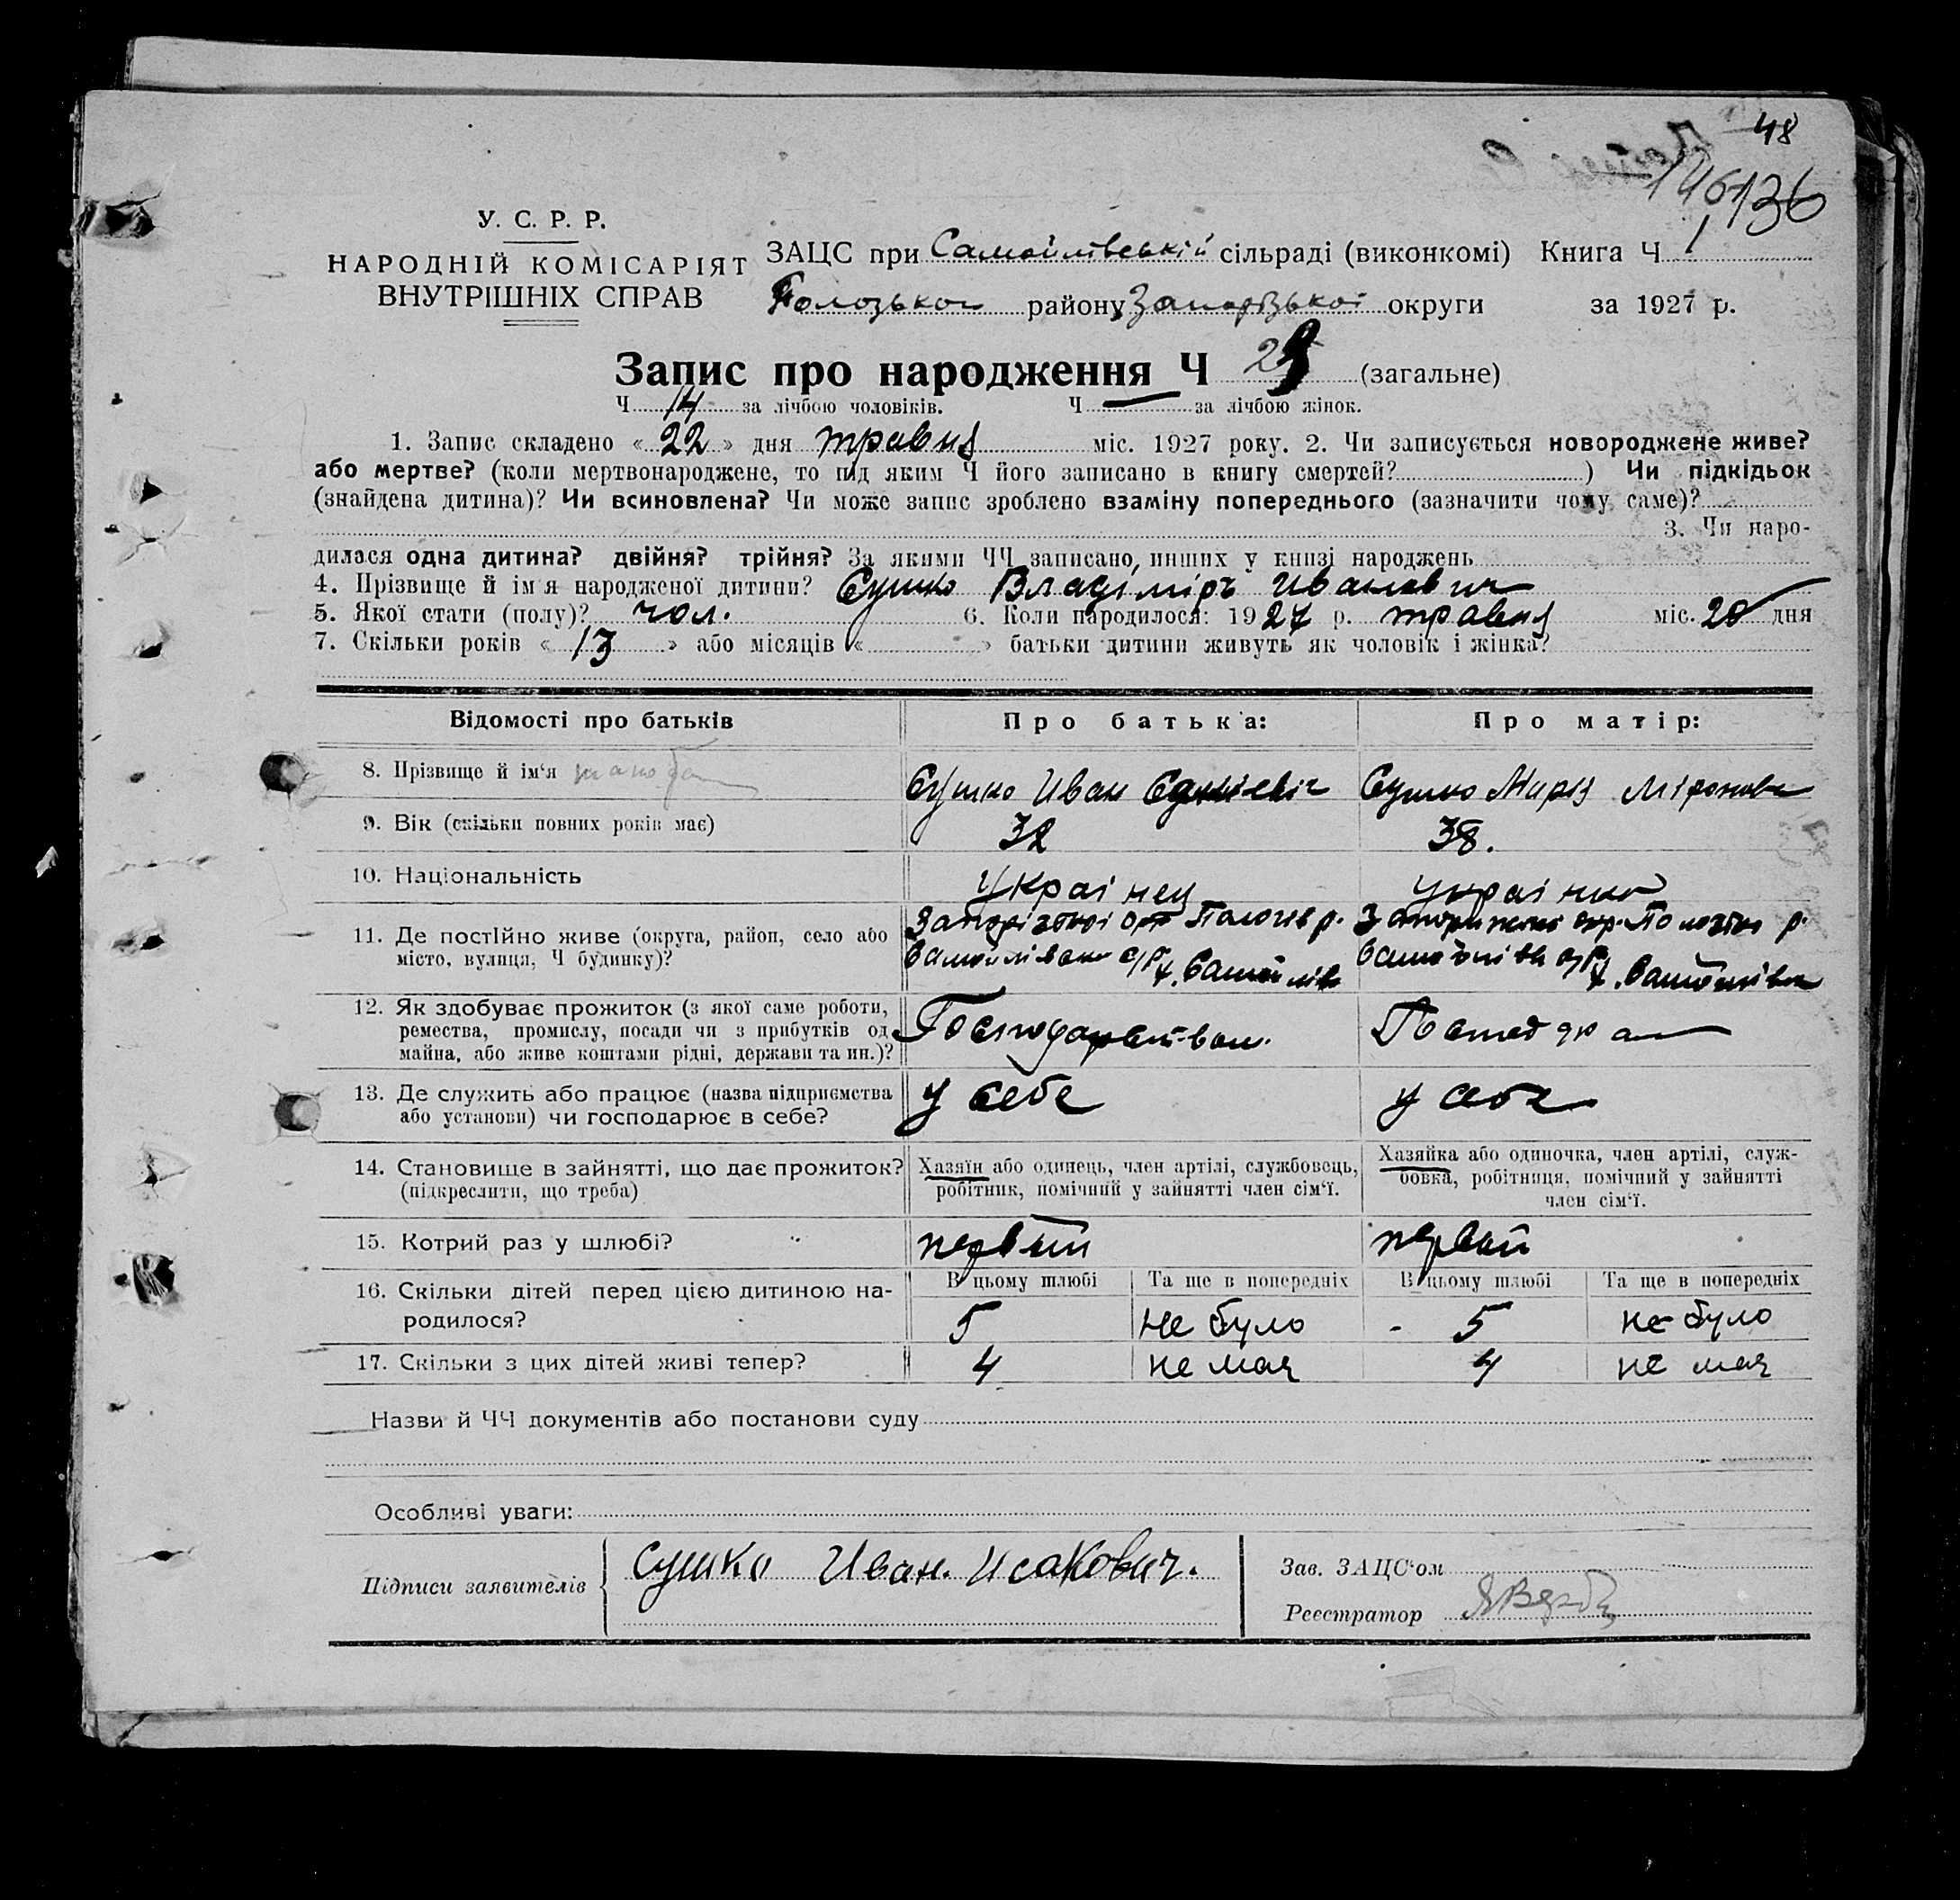 48
136
У. С. Р. Р.
НАРОДНІЙ КОМІСАРІЯТ
ВНУТРІШНІХ СПРАВ
ЗАЦС при Самойлівській сільраді (виконкомі) Книга Ч 1
району Запорізької округи за 1927 р.
Запис про народження Ч 29 (загальне)
Ч 14 за лічбою чоловіків. Ч — за лічбою жінок.
1. Запис складено « 22 » дня травня міс. 1927 року. 2. Чи записується новороджене живе?
або мертве? (коли мертвонароджене, то під яким Ч його записано в книгу смертей? ) Чи підкідьок
(знайдена дитина)? Чи всиновлена? Чи може запис зроблено взаміну попереднього (зазначити чому саме)?
3. Чи наро-
дилася одна дитина? двійня? трійня? За якими ЧЧ записано инших у книзі народжень
4. Прізвище й ім'я народженої дитини? Сушко Владіміръ Иванович
5. Якої стати (полу)? чол. 6. Коли народилося: 1927 р. травня міс. 20 дня
7. Скільки років « 13 » або місяців « » батьки дитини живуть як чоловік і жінка?
Відомості про батьків Про батька: Про матір:
8. Прізвище й ім'я Сушко Иван Сушко Мирономна
9. Вік (скільки повних років має) 32 38.
10. Національність Українец українка
11. Де постійно живе (округа, район, село або
місто, вулиця, Ч будинку)?
12. Як здобуває прожиток (з якої саме роботи,
ремества, промислу, посади чи з прибутків од
майна, або живе коштами рідні, держави та ин.)?
Господарством.
13. Де служить або працює (назва підприємства
або установи) чи господарює в себе?
у себе у себе
14. Становище в зайнятті, що дає прожиток?
(підкреслити, що треба)
Хазяїн або одинець, член артілі, службовець,
робітник, помічний у зайнятті член сім'ї.
Хазяйка або одиночка, член артілі, служ-
бовка, робітниця, помічний у зайнятті
член сім'ї.
15. Котрий раз у шлюбі? первый первый
В цьому шлюбі Та ще в попередніх В цьому шлюбі Та ще в попередніх
16. Скільки дітей перед цією дитиною на-
родилося?
5 не було 5 не було
17. Скільки з цих дітей живі тепер? 4 не мая 4 не мая
Назви й ЧЧ документів або постанови суду
Особливі уваги:
Підписи заявителів Сушко Иван. Исакович.
Зав. ЗАЦС'ом
Реєстратор